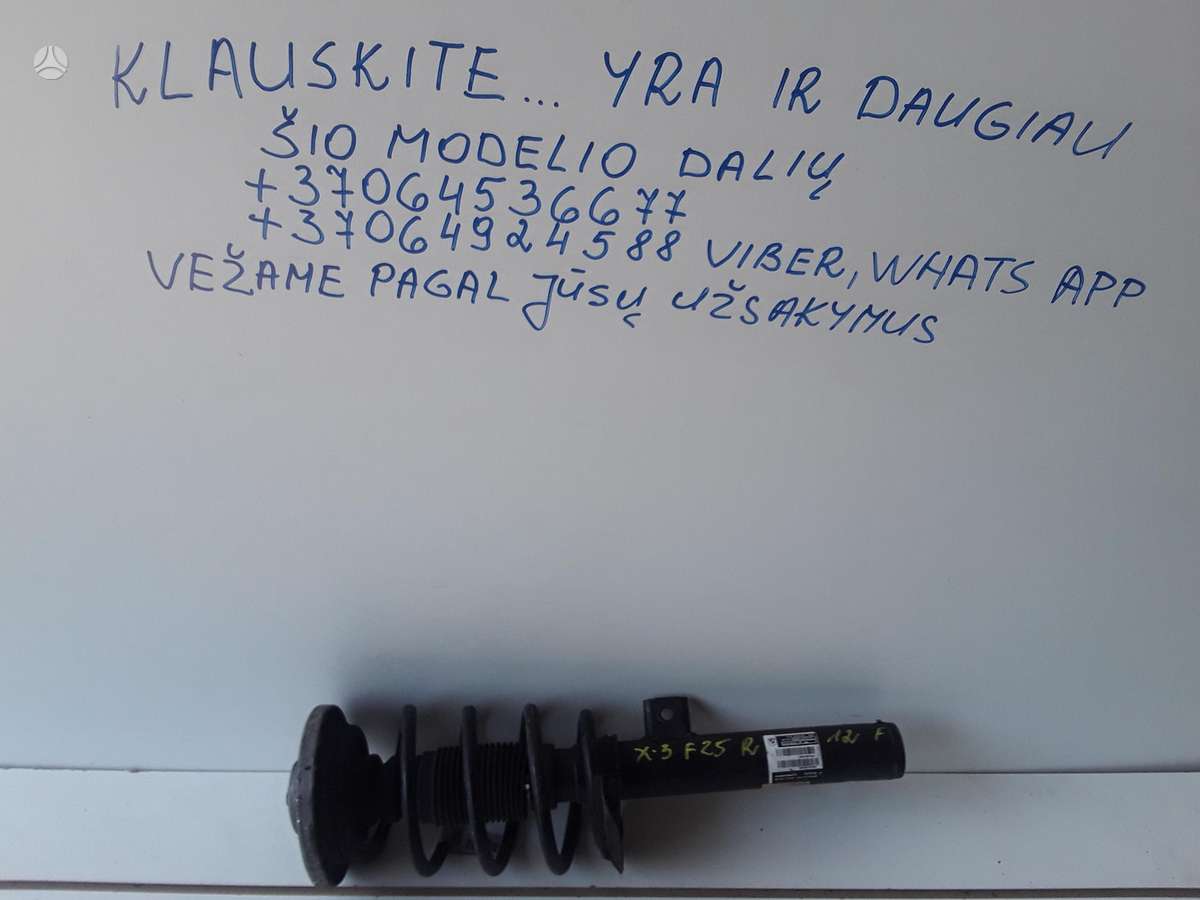 KLAUSKITE... YRA IR DAUGIAU
ŠIO MODELIO DALIŲ
+37064536677
+37064924588 VIBER, WHATS APP
VEŽAME PAGAL JŪSŲ UŽSAKYMUS
X-3 F25 R 12 F